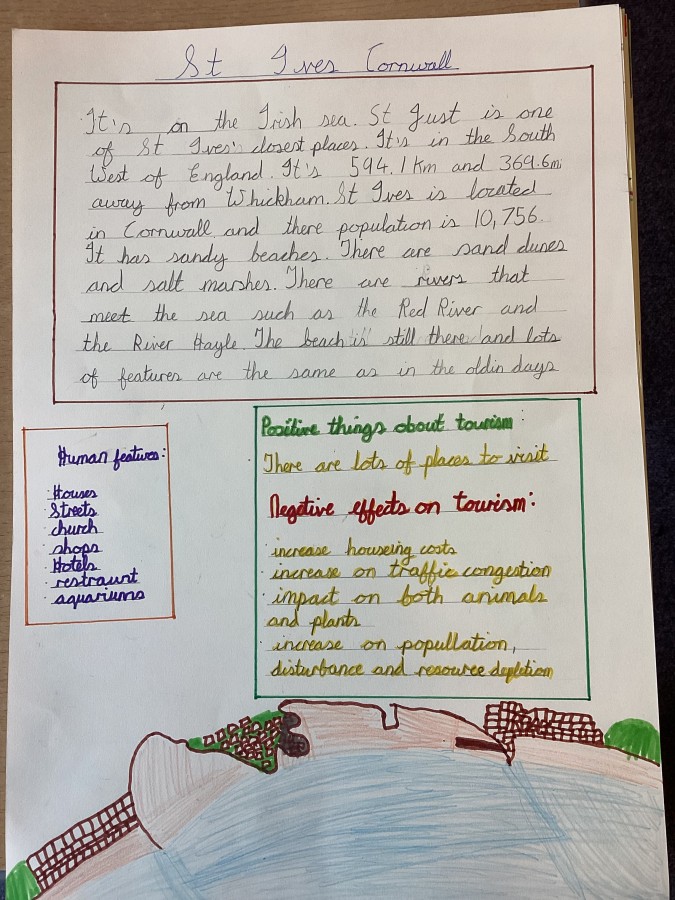 St Ives Cornwall
It's on the Irish sea. St Just is one
of St Ives's closest places. It's in the South
West of England. It's 594.1km and 369.6mi
away from Whickham. St Ives is located
in Cornwall and there population is 10,756.
It has sandy beaches. There are sand dunes
and salt marshes. There are rivers that
meet the sea such as the Red River and
the River Hayle. The beach is still there and lots
of features are the same as in the oldin days
Human features:
· Houses
· Streets
· church
· shops
· Hotels
· restraunt
· aquariums
Positive things about tourism:
· There are lots of places to visit
Negative effects on tourism:
· increase houseing costs
· increase on traffic congestion
· impact on both animals
and plants
· increase on popullation,
disturbance and resource depletion